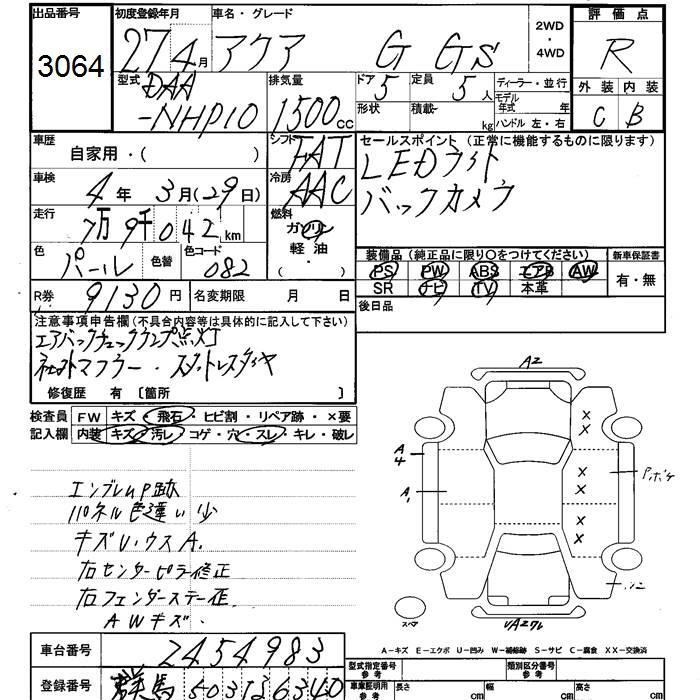 出品番号
3064
初度登録年月
27 4月
車名・グレード
アクア G Gs
2WD
・
4WD
評価点
R
外装 内装
C B
型式
DAA
-NHP10
排気量
1500cc
ドア
5
形状
定員
5人
積載
kg
ディーラー・並行
モデル
年式 年
ハンドル 左・右
車歴
自家用・( )
シフト
FAT
車検
4年 3月(29日)
冷房
AAC
走行
7万9千042km
燃料
ガソリン
軽・油
( ・ )
色
パール
色替
色コード
082
セールスポイント(正常に機能するものに限ります)
LEDライト
バックカメラ
装備品(純正品に限り○をつけてください)
新車保証書
PS PW ABS エアB AW
SR ナビ TV 本革
有・無
R券
9130円
名変期限 月 日
後日品
注意事項申告欄(不具合内容等は具体的に記入して下さい)
エアバックチェックランプ点灯
社外マフラー・スタットレスタイヤ
修復歴 有 〔箇所 〕
検査員
記入欄
FW キズ・飛石・ヒビ割・リペア跡・×要
内装 キズ・汚レ・コゲ・穴・スレ・キレ・破レ
エンブレムP跡
パネル色違い少
キズUウスA.
右センターピラ修正
右フェンダーステー歪
AWキズ.
A2
A4
A1
× × × × × ×
Pボケ
スペア
A-キズ E-エクボ U-凹み W-補修跡 S-サビ C-腐食 XX-交換済
車台番号
2454983
登録番号
群馬503 6340
型式指定番号
参考
類別区分番号
参考
車庫証明用
参考
長さ cm
幅 cm
高さ cm